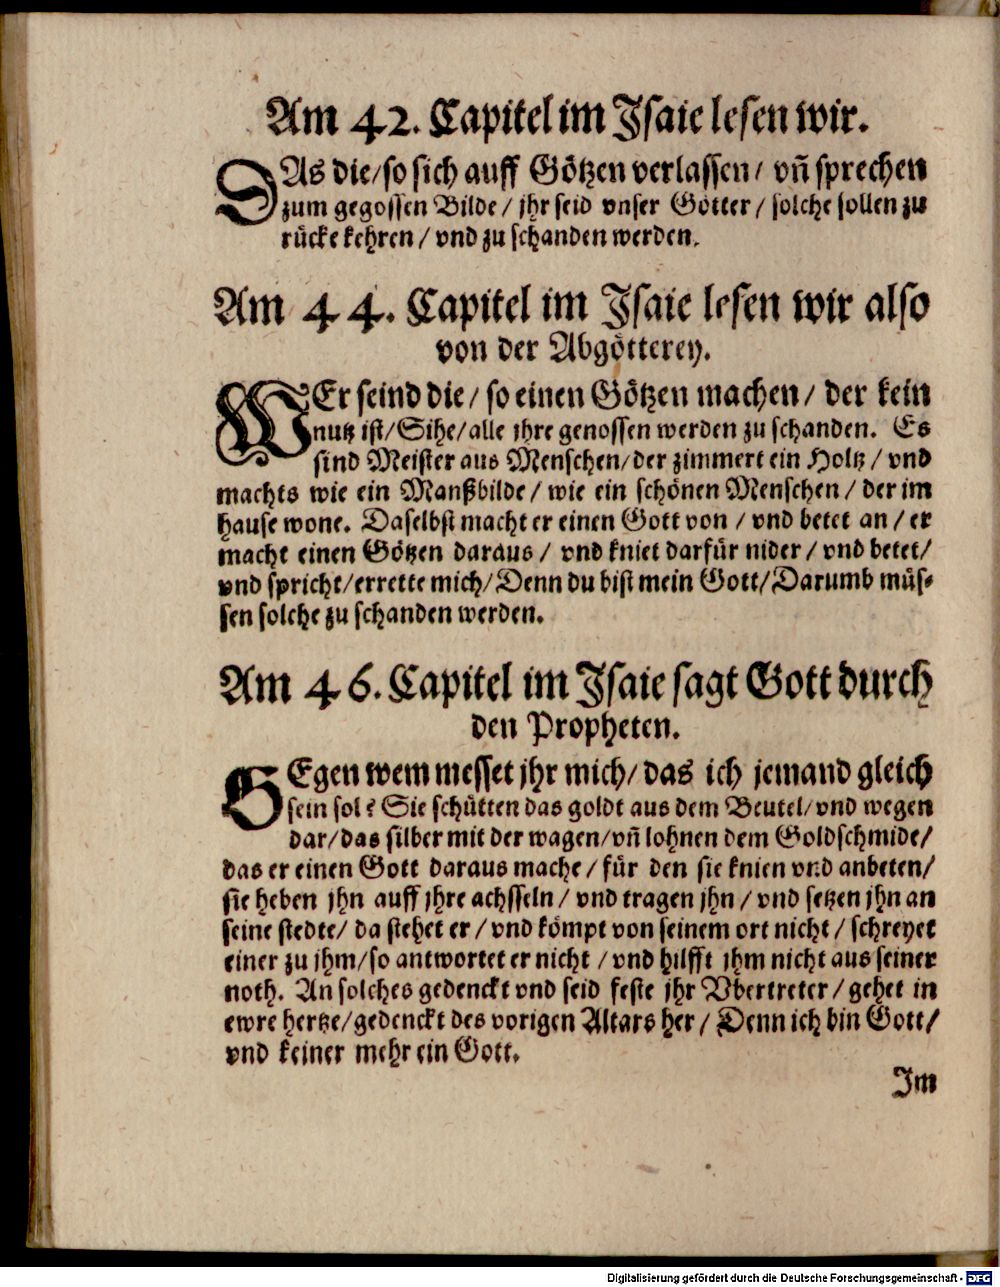 Am 42. Capitel im Jsaie lesen wir.
DAs die/so sich auff Götzen verlassen/ vñ sprechen
zum gegossen Bilde/ jhr seid vnser Götter/ solche sollen zu
rücke kehren/ vnd zu schanden werden.
Am 44. Capitel im Jsaie lesen wir also
von der Abgötterey.
WEr seind die/ so einen Götzen machen/ der kein
nutz ist/Sihe/alle jhre genossen werden zu schanden. Es
sind Meister aus Menschen/der zimmert ein Holtz/ vnd
machts wie ein Manßbilde/ wie ein schönen Menschen/ der im
hause wone. Daselbst macht er einen Gott von/ vnd betet an/ er
macht einen Götzen daraus/ vnd kniet darfür nider/ vnd betet/
vnd spricht/errette mich/Denn du bist mein Gott/Darumb müs-
sen solche zu schanden werden.
Am 46. Capitel im Jsaie sagt Gott durch
den Propheten.
GEgen wem messet jhr mich/ das ich jemand gleich
sein sol? Sie schütten das goldt aus dem Beutel/ vnd wegen
dar/das silber mit der wagen/vñ lohnen dem Goldschmide/
das er einen Gott daraus mache/ für den sie knien vnd anbeten/
sie heben jhn auff jhre achsseln/ vnd tragen jhn/ vnd setzen jhn an
seine stedte/ da stehet er/ vnd kömpt von seinem ort nicht/ schreyet
einer zu jhm/so antwortet er nicht/ vnd hilfft jhm nicht aus seiner
noth. An solches gedenckt vnd seid feste jhr Vbertreter/ gehet in
ewre hertze/gedenckt des vorigen Altars her/ Denn ich bin Gott/
vnd keiner mehr ein Gott.
Jm
Digitalisierung gefördert durch die Deutsche Forschungsgemeinschaft - DFG